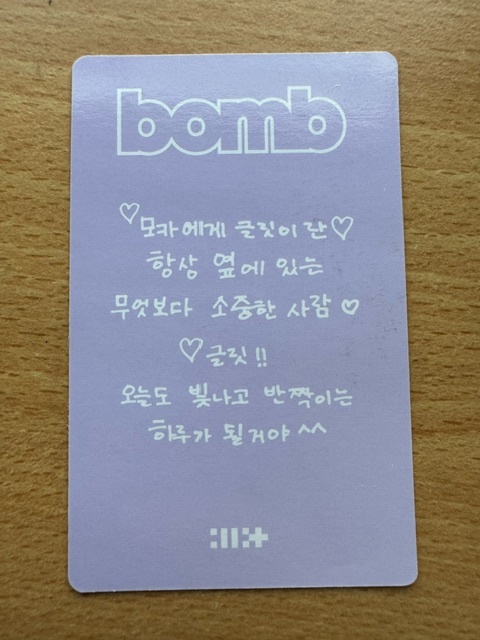 bomb
♡모카에게 글릿이란♡
항상 옆에 있는
무엇보다 소중한 사람 ♡
♡글릿!!
오늘도 빛나고 반짝이는
하루가 될거야 ^^